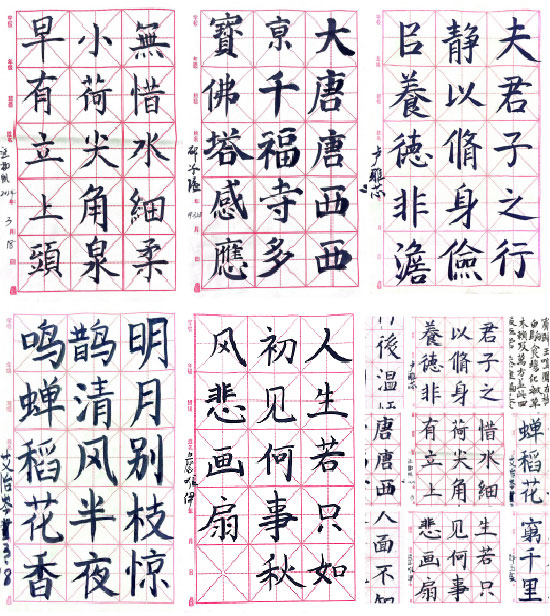 無惜水細柔
小荷尖角泉
早有立上頭
大唐唐西西
亰千福寺多
寶佛塔感應
夫君子之行
静以脩身儉
㠯養徳非澹
卢雅芯
明月别枝惊
鹊清风半夜
鸣蝉稻花香
人生若只如
初见何事秋
风悲画扇
君子之
以脩身
養徳非
後温
惜水細
荷尖角
有立上
唐唐西
蝉稻花
生若只
见何事
悲画扇
人面不知
窮千里